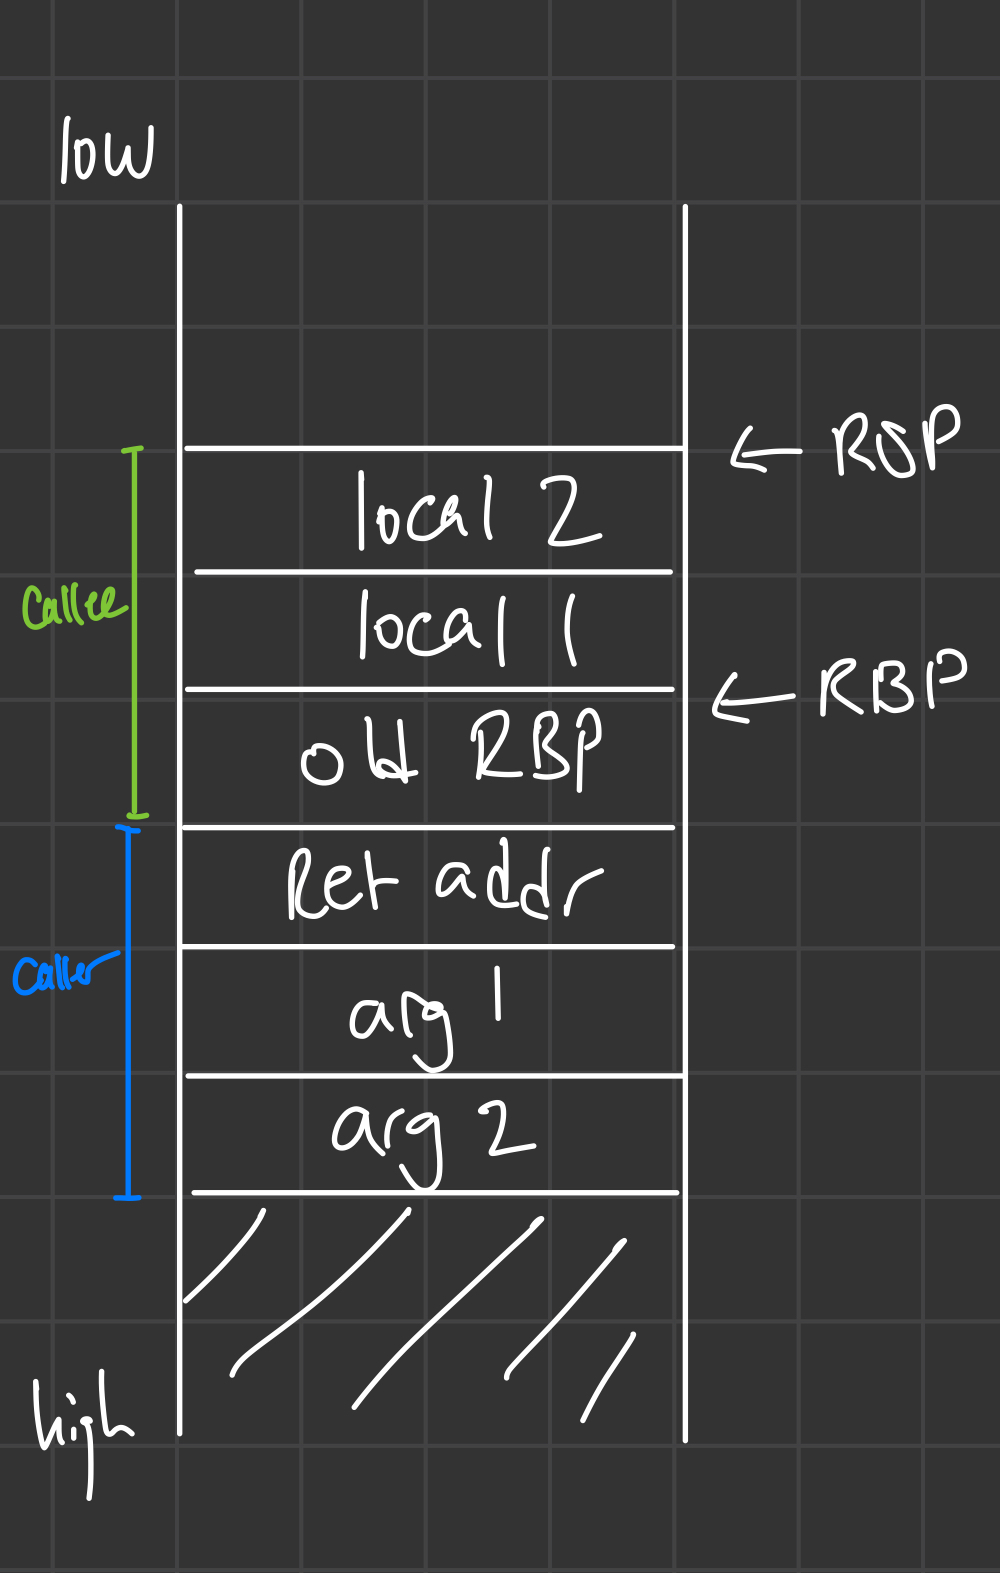 low
← RSP
local 2
callee
local 1
← RBP
old RBP
Ret addr
caller
arg 1
arg 2
high